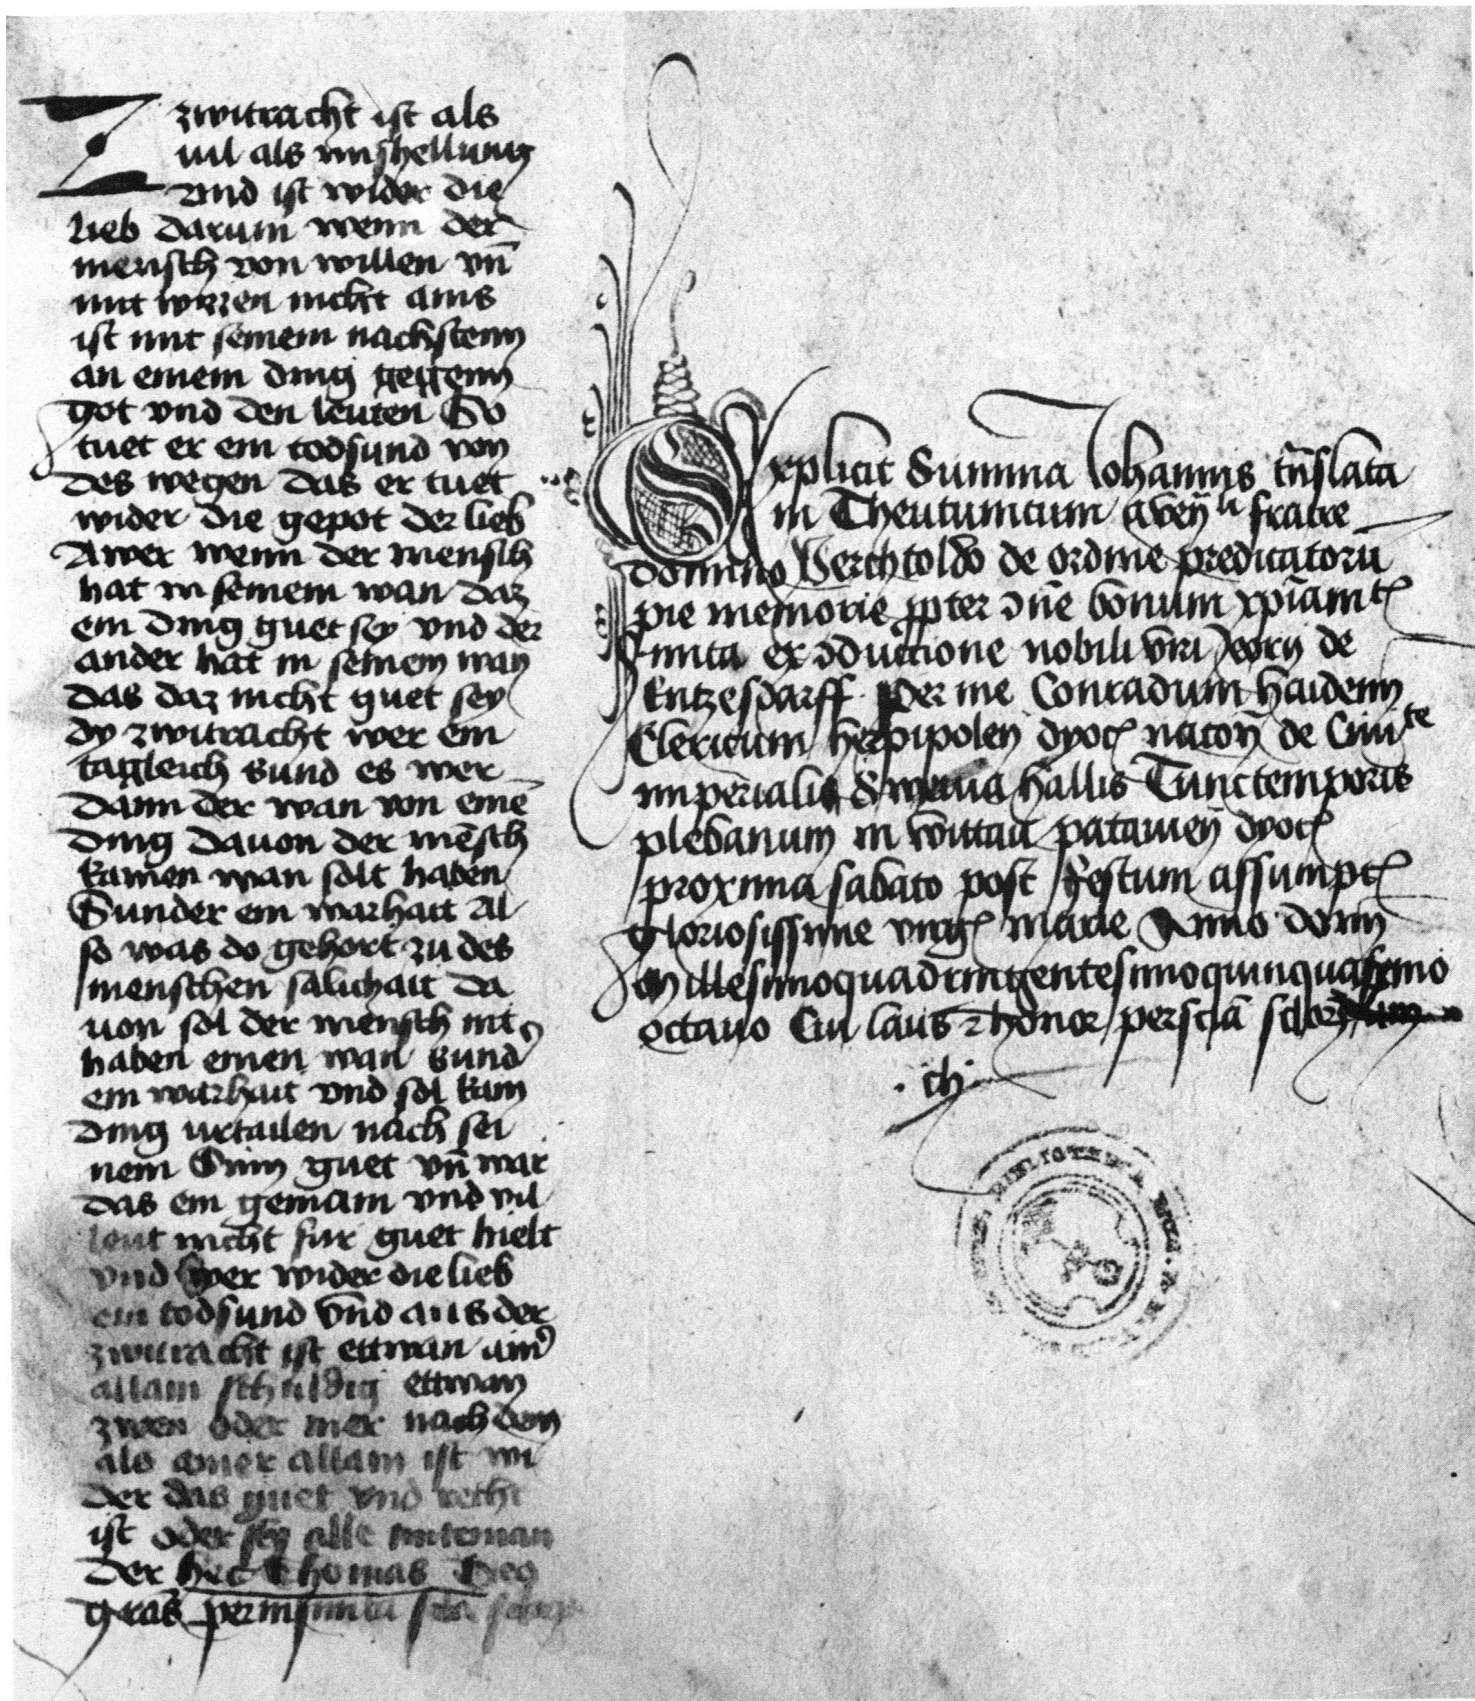 Zzwitracht ist als
vil als mishellung
vnd ist wider die
lieb darum wenn der
mensch von willen vn̄
mit wizzen nicht ains
ist mit seinem nachstenn
an einem ding gegenn
got vnd den leuten So
tuet er ein todsund von
des wegen das er tuet
wider die gepot der lieb
Awer wenn der mensch
hat in seinem wan daz
ein ding guet sey vnd der
ander hat in seinem wan
das daz nicht guet sey
dy zwitracht wer ein
tagleich sund es wer
dann der wan von einē
ding dauon der mēsch
kainen wan solt haben
Sunder ein warhait Al
so was do gehort zu des
menschen salichait da
uon sol der mensch nit
haben einen wan sund̛
ein warhait vnd sol kain
ding urtailen nach sei
nem Sinn guet vn̄ war
das ein gemain vnd vil
leut nicht für guet hielt
vnd wer wider die lieb
ein todsund vnd aus der
zwitracht ist ettwan ain̛
allain schuldig ettwan
zwen oder mer nach dem
als ainer allain ist wi
der das guet vnd recht
ist oder sy alle
der hec Thomas Deo
grās
Explicit Summa Johannis tn̄slata
in Theutunicum a fratre
domino Berchtoldo de ordine predicatorū
pie memorie ꝓpter ꝯūe bonum xp̄iam
finita ex ꝯductione nobili viri Jeorij de
Entzesdarff per me Conradum haidenn
Clericum herbipolen̄ dyoc̄ nacōn̄ de Ciuite
imperialis Sweuis hallis Tunctemporis
plebanum in wittau patauien̄ dyoc̄
proxima sabato post festum assumpc̄
gloriosissime virḡ marie Anno domī
Millesimoquadringentesimoquinquagesimo
octauo Cui laus ⁊ honor per
· ch ·